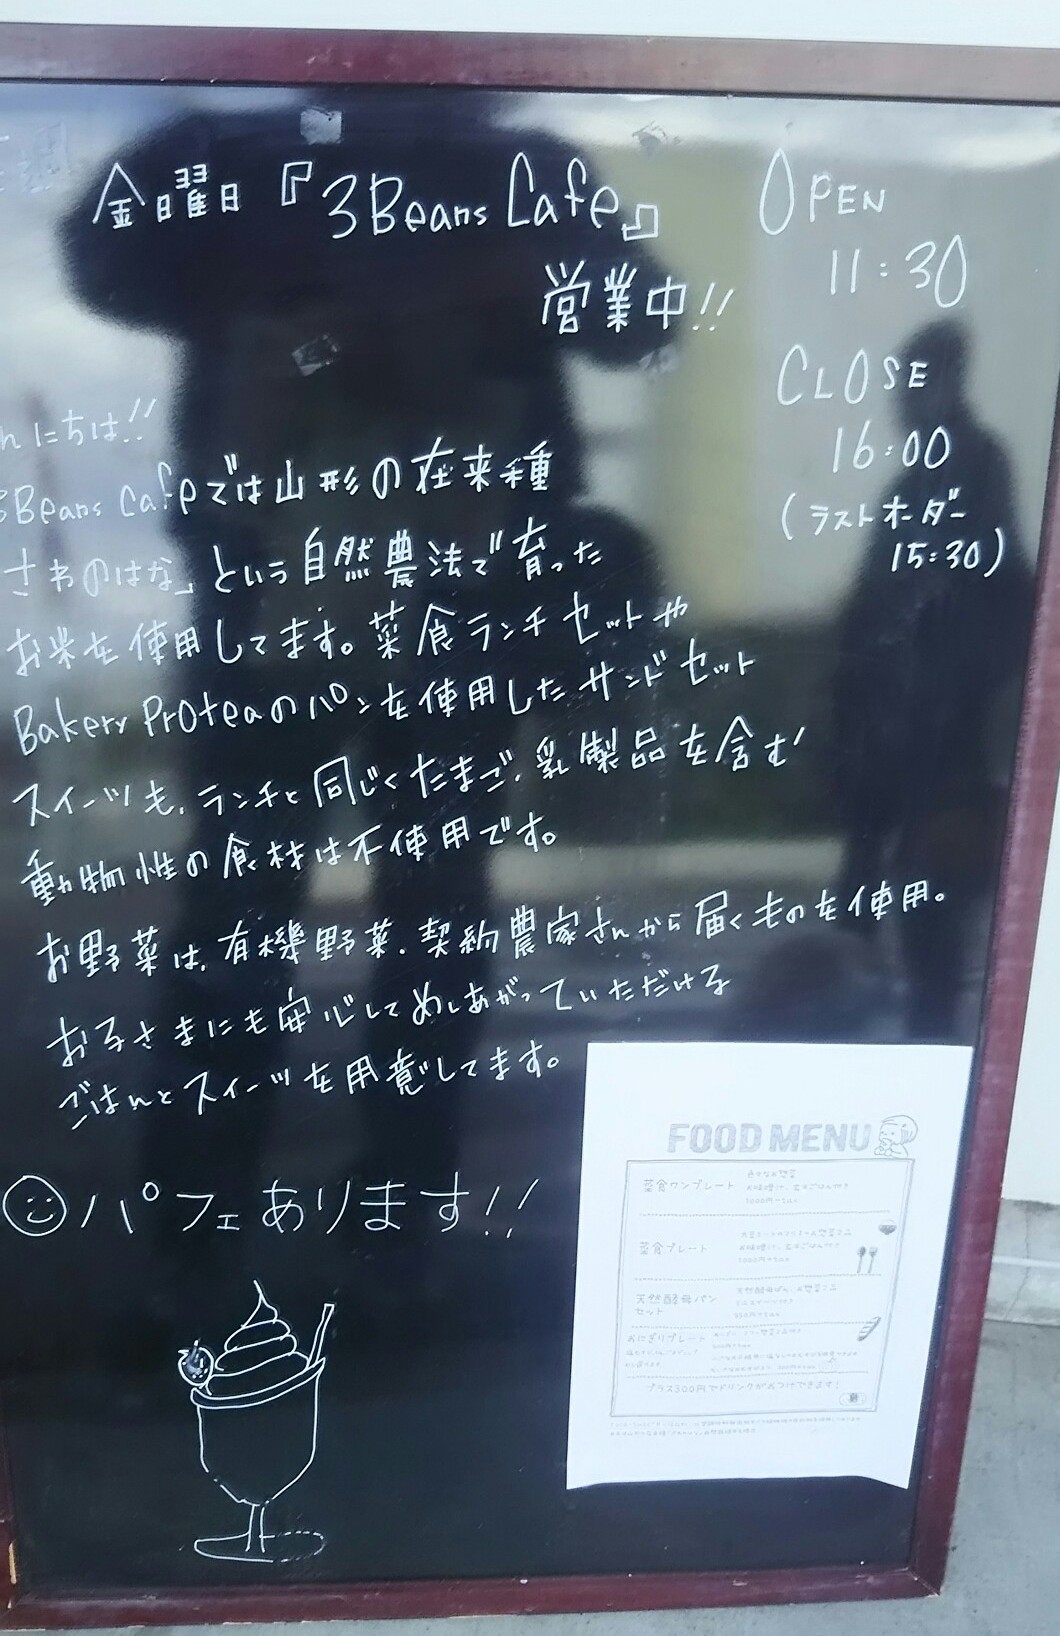 金曜日『3Beans Cafe』
営業中!!
OPEN
11:30
CLOSE
16:00
(ラストオーダー
15:30)
んにちは!!
3Beans Cafeでは山形の在来種
さわのはな」という自然農法で育った
お米を使用してます。菜食ランチセットや
Bakery Proteaのパンを使用したサンドセット
スイーツも、ランチと同じくたまご、乳製品を含む
動物性の食材は不使用です。
お野菜は、有機野菜、契約農家さんから届くものを使用。
お子さまにも安心してめしあがっていただける
ごはんとスイーツを用意してます。
パフェあります!!
FOOD MENU
菜食ワンプレート
菜食プレート
天然酵母パン
セット
おにぎりプレート
プラス300円でドリンクがおつけできます!